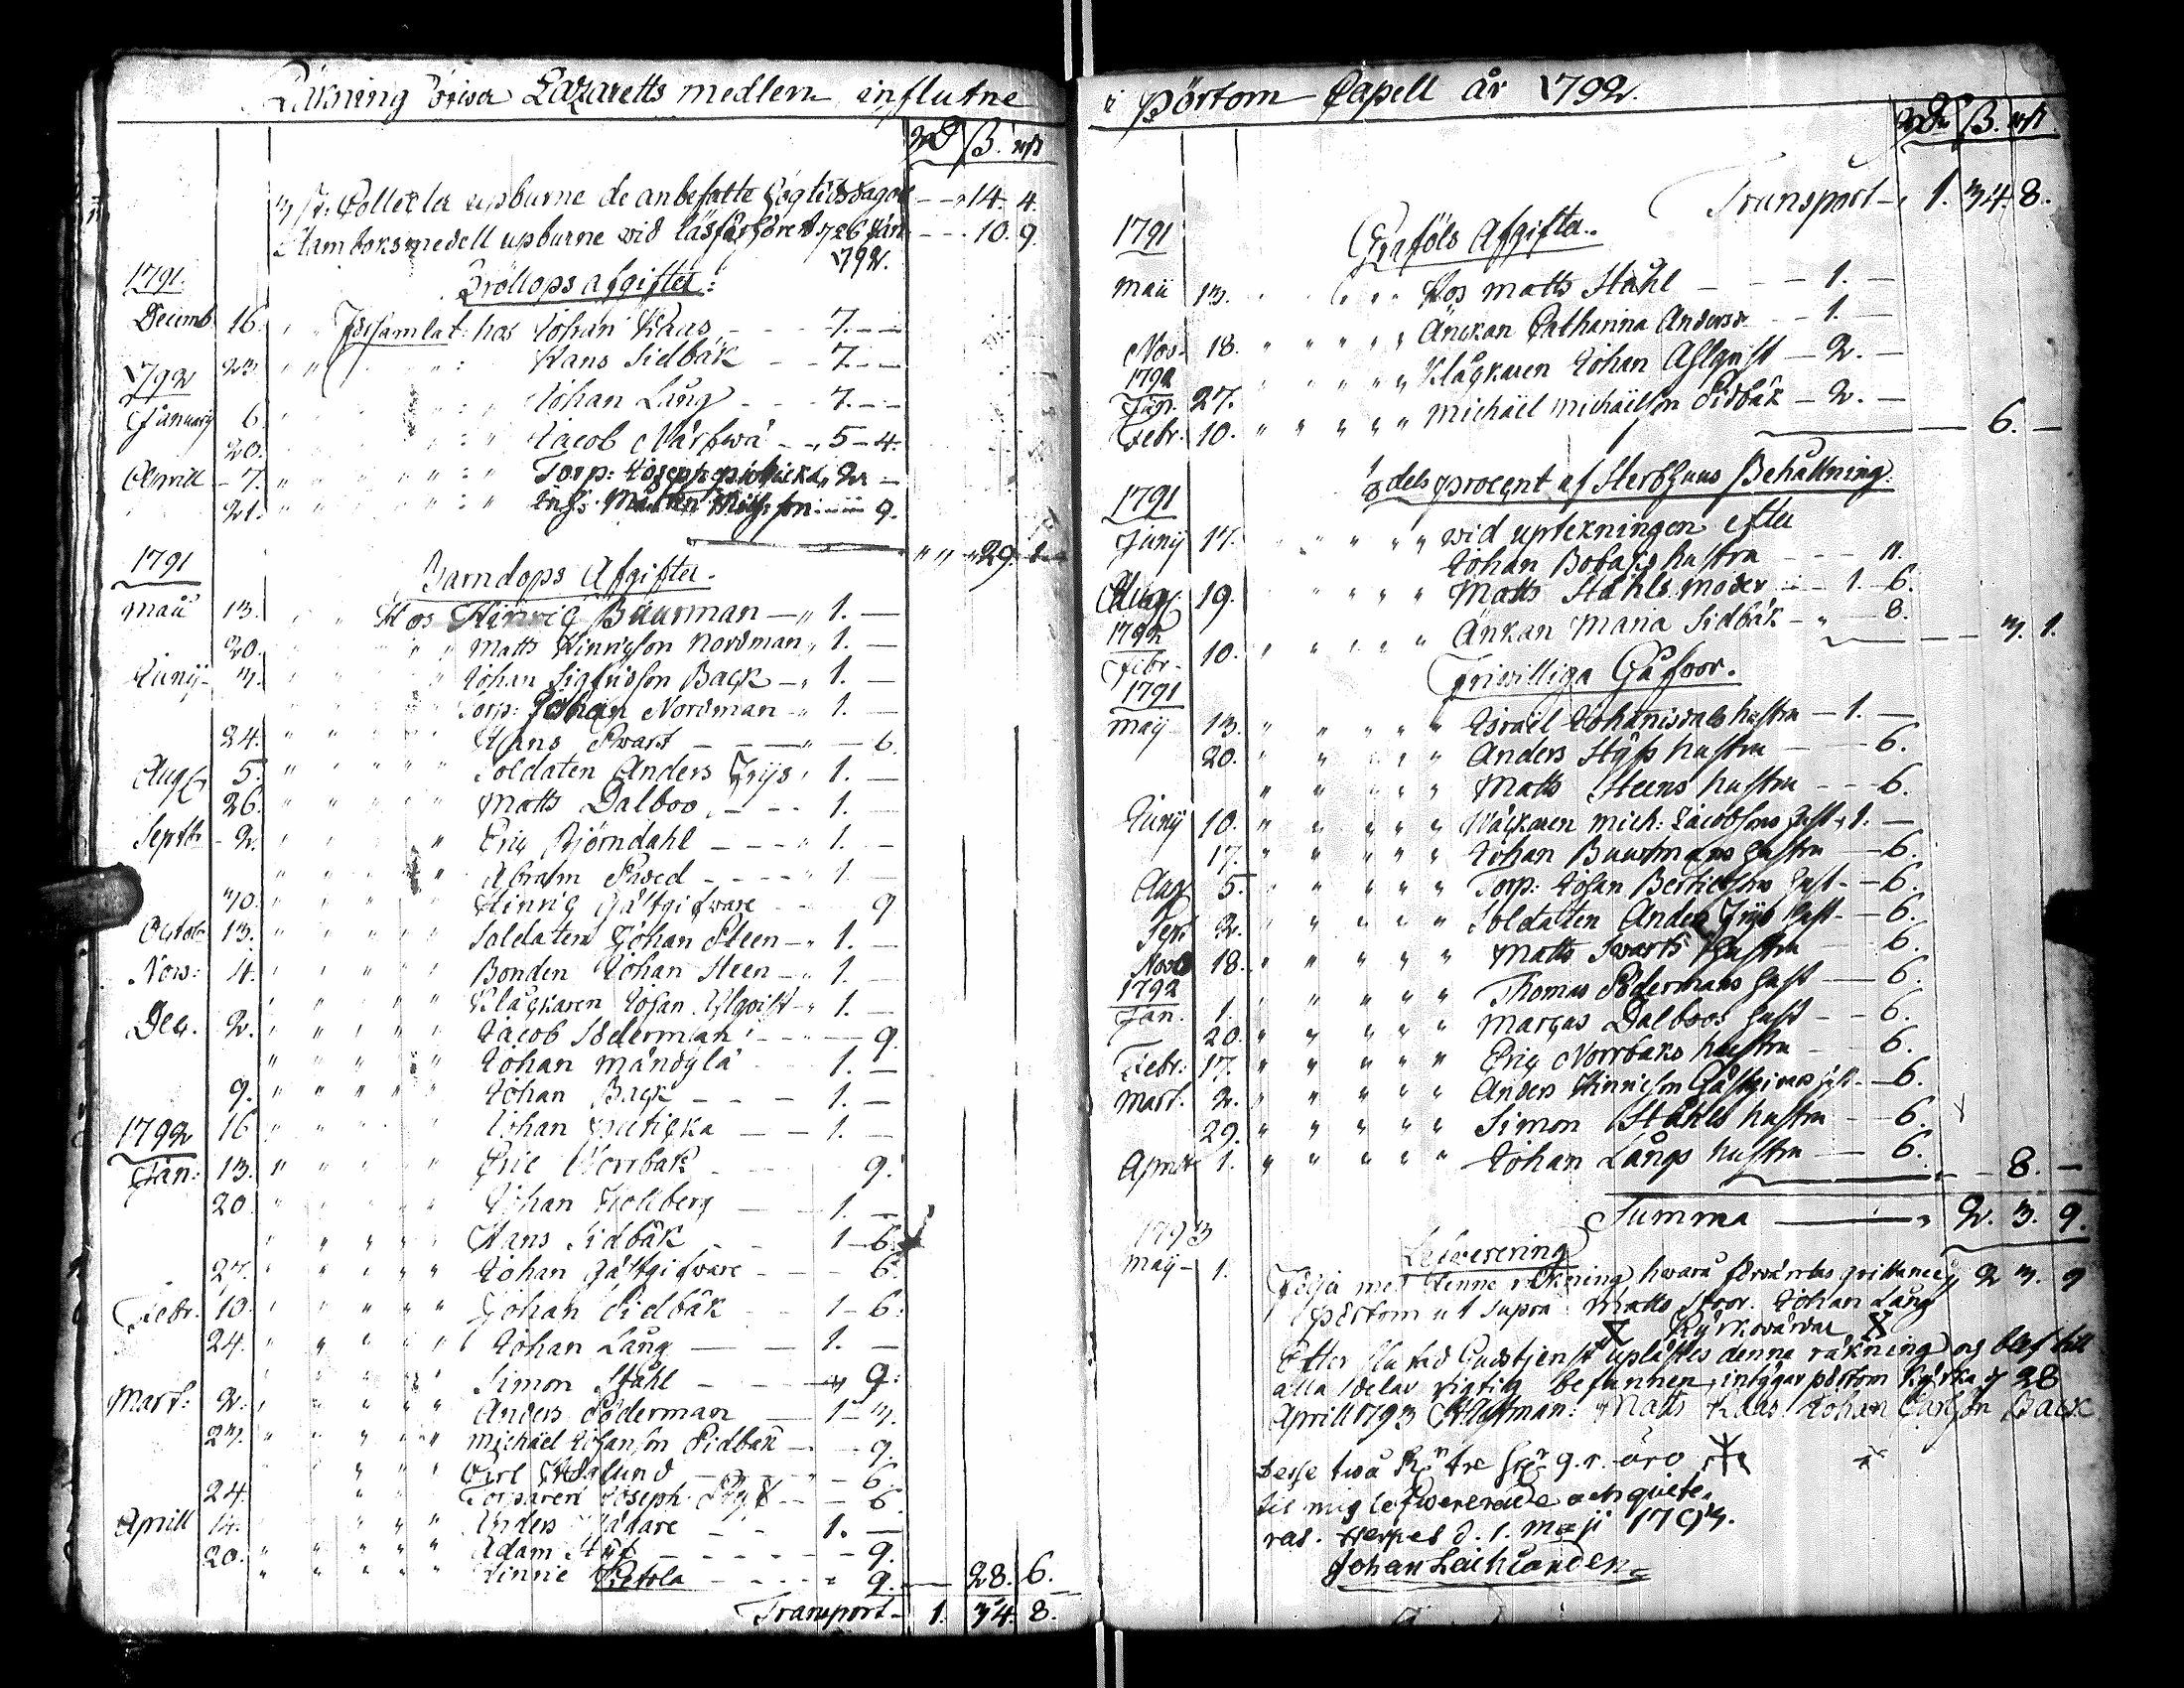 Räkning öfwer Lazaretts medlen influtne
Rd ß. rst
3 st: Collecter upburne de anbefalte Högtidsdagar — 14. 4.
Stamboksmedell upburne wid läsförhöret 26 Jan. — 10. 9.
1792.
1791. Bröllops afgifter:
Decemb. 16. Församlat: hos Johan Klaas — 7. —
23. Hans Sidbäk — 7. —
1792
January 6. Johan Lång — 7. —
20. Jacob — 5 — 4.
Aprill 7. Torp: Joseph — 2. —
21. — 9.
29. 1.
1791 Barndops Afgifter.
Maii 13. Hos Hinric Buurman — 1. —
20. Matts Hinricson Nordman 1. —
Junij 3. Johan Sigfridsson Back — 1. —
Torp: Johan Nordman — 1. —
24. Hans Swart — 6.
Aug 5. Soldaten Anders Frijs 1. —
26. Matts Dalboo — 1. —
Septbr 2. Eric Björndahl — 1. —
Abrahm Swed — 1. —
30. Hinric Gästgifware — 9
Octob 13. Soldaten Johan Steen — 1. —
Nov: 4. Bonden Johan Steen — 1. —
Klåckaren Johan Ahlqvist — 1. —
Dec. 2. Jacob Söderman — 9.
Johan Mándylä — 1. —
9. Johan Back — 1. —
16 Johan — 1. —
1792
Jan: 13. Eric Norrbäk — 9.
20. Johan — 1. —
Hans Sidbäk — 1 — 6.
27. Johan Gästgifware — 6.
Febr. 10. Johan Sidbäk — 1 — 6.
24. Johan Lång — 1. —
Simon Ståhl — 9.
Mart: 2. Anders Söderman — 1 — 3.
23. Michäel Johanson Sidbäk — 9.
Carl — 6
24. Torparen Joseph — 6.
Aprill 14. Anders — 1. —
20. Adam — 9.
Hinric — 9. — 28. 6.
Transport — 1. 34. 8.
i Pörtom Capell år 1792.
Rd ß. rst
Transport — 1. 34. 8.
1791 Graföls Afgifter.
Maii 13. Hos Matts Ståhl — 1. —
Nov. 18. Änckan Catharina Andersdr — 1. —
1792
Jan. 27. Klåckaren Johan Ahlqvist — 2. —
Febr. 10. Michäel Michäelson Sidbäk — 2. —
6. —
1/8 dels procent af Sterbhuus Behållning.
1791
Junij 17. wid uptekningen efter
Johan Bobaks hustru — 11.
Aug 19. Matts Ståhls Moder — 1. 6.
1792
Febr. 10. Änkan Maria Sidbäk — 8.
3. 1.
Friwilliga Gåfwor.
1791
May 13. Israël Johanisdals hustru — 1. —
20. Anders hustru — 6.
Matts Steens hustru — 6.
Junij 10. Mich: Jacobsons hust. 1. —
17. Johan Buurmans hustru — 6.
Aug 5. Torp: Johan Bertilsons hust. — 6.
Sept 2. Soldaten Anders Frijs hust. — 6.
Nov 18. Matts Swarts hustru — 6.
1792
Jan. 1. Thomas Södermans hust — 6.
20. Marcus Dalboos hust — 6.
Febr: 17. Eric Norrbäks hustru — 6.
Mart. 2. Anders Hinricson Gästgifwars hust. — 6.
29. Simon Ståhls hustru — 6.
April 1. Johan Långs hustru — 6.
8. —
Summa — 2. 3. 9.
1793 Lefwerering
May 1. Följa med denne räkning hwarå förwäntas qvittance 2 3. 9
Pörtom ut supra Matts Johan Lång
X Kyrkowärdar X
Efter slutad Gudstjenst uplästes denna räkning och blef till
alla delar rigtig befunnen, intygar Pörtom Kyrka d 28
Aprill 1793 Matts Klaas Johan Carlson Back
Desse två Rdr tre sk 9. r. äro
til mig lefwererade och quite-
ras. d. 1. Maji 1793.
Johan